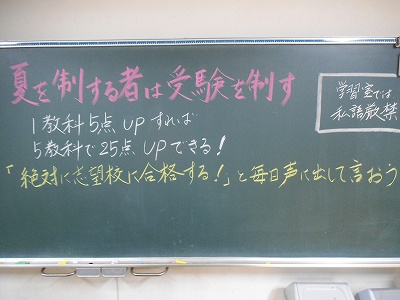 夏を制する者は受験を制す
1教科5点UPすれば
5教科で25点UPできる!
「絶対に志望校に合格する!」と毎日声に出して言おう
学習室では
私語厳禁